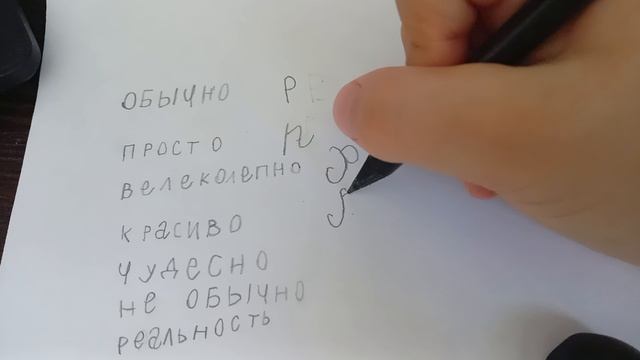 обычно Р Е
просто п
велеколепно Я
красиво
чудесно
не обычно
реальность